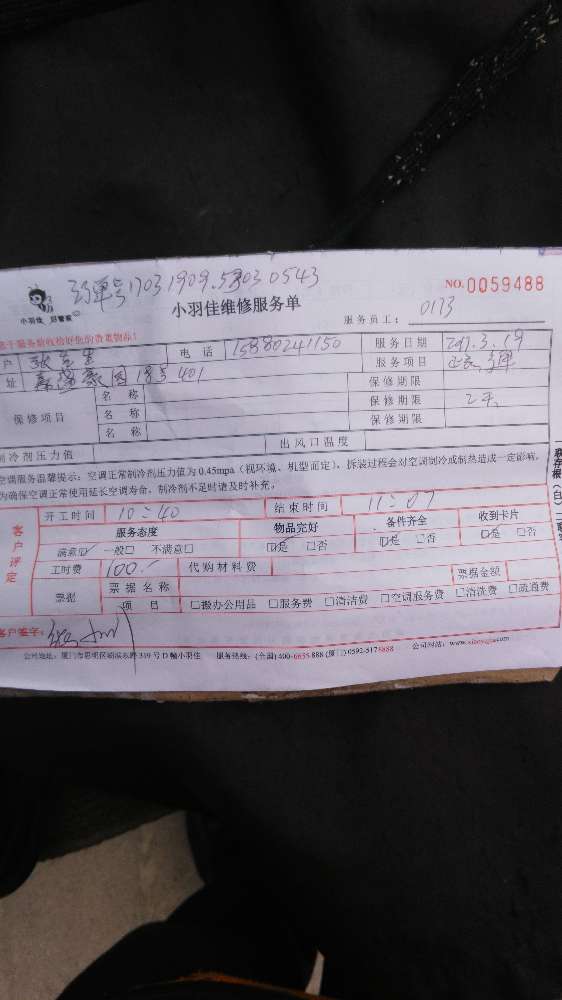 订单号1703190953030543
NO.0059488
小羽佳 好管家
小羽佳维修服务单
服务员工: 0173
户 张先生 电话 15880241150 服务日期 2017.3.19
址 185 401 服务项目
保修项目 名称 保修期限
名称 保修期限
名称 保修期限
制冷剂压力值 出风口温度
空调服务温馨提示:空调正常制冷剂压力值为0.45mpa(视环境、机型而定),拆装过程会对空调制冷或制热造成一定影响,
为确保空调正常使用延长空调寿命,制冷剂不足时请及时补充。
客户评定
开工时间 10:40 结束时间 11:07
服务态度 物品完好 备件齐全 收到卡片
满意☑ 一般□ 不满意□ ☑是 □否 ☑是 □否 □是 □否
工时费 100.- 代购材料费
票据 票据名称 票据金额
项目 □搬办公用品 □服务费 □清洁费 □空调服务费 □清洗费 □疏通费
客户签字:
公司地址:厦门市思明区 319号D幢小羽佳 服务热线:(全国)400-6635-888 (厦门)0592-5178888 公司网站:www.xiaoyujia.com